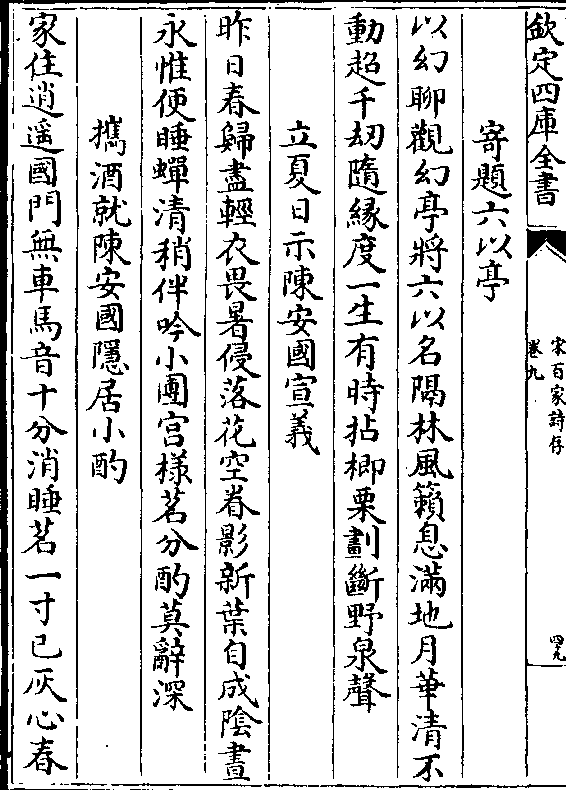 欽定四庫全書
宋百家詩存
卷九
四九
寄題六以亭
以幻聊觀幻亭將六以名隔林風籟息滿地月華清不
動超千刼隨緣度一生有時拈楖栗劃斷野泉聲
立夏日示陳安國宣義
昨日春歸盡輕衣畏暑侵落花空眷影新葉自成陰晝
永惟便睡蟬清稍伴吟小團宫様茗分酌莫辭深
携酒就陳安國隱居小酌
家住逍遥國門無車馬音十分消睡茗一寸已灰心春